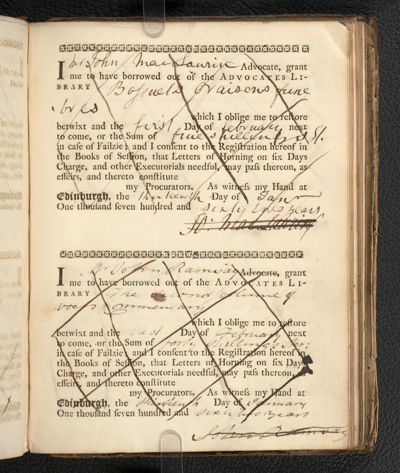 I Mr John MacLaurin Advocate, grant
me to have borrowed out of the ADVOCATES LI-
BRARY Bossuets Oraisons fune
bres
which I oblige me to restore
betwixt and the first Day of february next
to come, or the Sum of five shillings St.
in case of Failzie; and I consent to the Registration hereof in
the Books of Session, that Letters of Horning on six Days
Charge, and other Executorials needful, may pass thereon, as
effeirs, and thereto constitute
my Procurators. As witness my Hand at
Edinburgh, the thirteenth Day of Janr
One thousand seven hundred and sixty two years
Jo: MacLaurin
I Mr John Ramsay Advocate, grant
me to have borrowed out of the ADVOCATES LI-
BRARY The second volume of
voets Commentary
which I oblige me to restore
betwixt and the Day of next
to come, or the Sum of forty shillings
in case of Failzie; and I consent to the Registration hereof in
the Books of Session, that Letters of Horning on six Days
Charge, and other Executorials needful, may pass thereon, as
effeirs, and thereto constitute
my Procurators. As witness my Hand at
Edinburgh, the thirteenth Day of January
One thousand seven hundred and sixty two years
John Ramsay